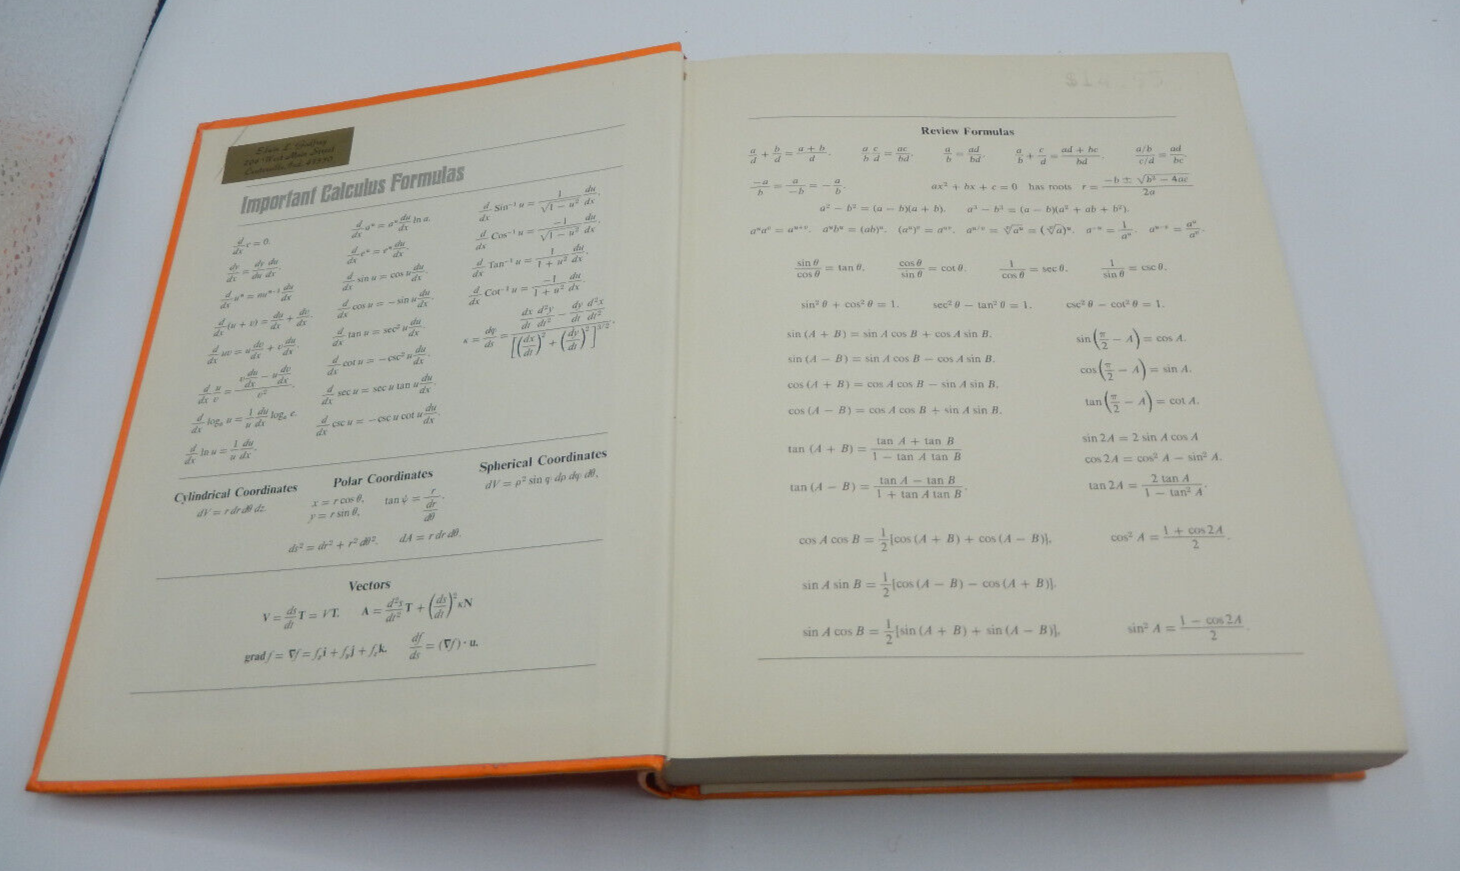 Important Calculus Formulas
d/dx c = 0.
dy/dx = dy/du du/dx.
d/dx uⁿ = nuⁿ⁻¹ du/dx
d/dx (u + v) = du/dx + dv/dx.
d/dx uv = u dv/dx + v du/dx.
d/dx u/v = (v du/dx − u dv/dx)/v².
d/dx logₐ u = 1/u du/dx logₐ e.
d/dx ln u = 1/u du/dx.
d/dx aᵘ = aᵘ du/dx ln a.
d/dx eᵘ = eᵘ du/dx.
d/dx sin u = cos u du/dx.
d/dx cos u = −sin u du/dx.
d/dx tan u = sec² u du/dx.
d/dx cot u = −csc² u du/dx.
d/dx sec u = sec u tan u du/dx.
d/dx csc u = −csc u cot u du/dx.
d/dx Sin⁻¹ u = 1/√(1 − u²) du/dx.
d/dx Cos⁻¹ u = −1/√(1 − u²) du/dx.
d/dx Tan⁻¹ u = 1/(1 + u²) du/dx.
d/dx Cot⁻¹ u = −1/(1 + u²) du/dx.
κ = dφ/ds = (dx/dt d²y/dt² − dy/dt d²x/dt²)/[(dx/dt)² + (dy/dt)²]^3/2.
Cylindrical Coordinates
dV = r dr dθ dz.
Polar Coordinates
x = r cos θ, tan ψ = r/(dr/dθ).
y = r sin θ,
ds² = dr² + r² dθ². dA = r dr dθ.
Spherical Coordinates
dV = ρ² sin φ dρ dφ dθ.
Vectors
V = ds/dt T = VT. A = d²s/dt² T + (ds/dt)² κN
grad f = ∇f = fₓi + f_y j + f_z k. df/ds = (∇f) · u.
Review Formulas
a/d + b/d = (a + b)/d. a/b c/d = ac/bd. a/b = ad/bd. a/b + c/d = (ad + bc)/bd. (a/b)/(c/d) = ad/bc.
−a/b = a/−b = −a/b. ax² + bx + c = 0 has roots r = (−b ± √(b² − 4ac))/2a
a² − b² = (a − b)(a + b). a³ − b³ = (a − b)(a² + ab + b²).
aᵘaᵛ = aᵘ⁺ᵛ. aᵘbᵘ = (ab)ᵘ. (aᵘ)ᵛ = aᵘᵛ. aᵘ/ᵛ = ᵛ√aᵘ = (ᵛ√a)ᵘ. a⁻ᵘ = 1/aᵘ. aᵘ⁻ᵛ = aᵘ/aᵛ.
sin θ/cos θ = tan θ. cos θ/sin θ = cot θ. 1/cos θ = sec θ. 1/sin θ = csc θ.
sin² θ + cos² θ = 1. sec² θ − tan² θ = 1. csc² θ − cot² θ = 1.
sin (A + B) = sin A cos B + cos A sin B.
sin (A − B) = sin A cos B − cos A sin B.
cos (A + B) = cos A cos B − sin A sin B.
cos (A − B) = cos A cos B + sin A sin B.
sin(π/2 − A) = cos A.
cos(π/2 − A) = sin A.
tan(π/2 − A) = cot A.
tan (A + B) = (tan A + tan B)/(1 − tan A tan B)
tan (A − B) = (tan A − tan B)/(1 + tan A tan B).
sin 2A = 2 sin A cos A
cos 2A = cos² A − sin² A.
tan 2A = 2 tan A/(1 − tan² A).
cos A cos B = 1/2[cos (A + B) + cos (A − B)]. cos² A = (1 + cos 2A)/2.
sin A sin B = 1/2[cos (A − B) − cos (A + B)].
sin A cos B = 1/2[sin (A + B) + sin (A − B)]. sin² A = (1 − cos 2A)/2.